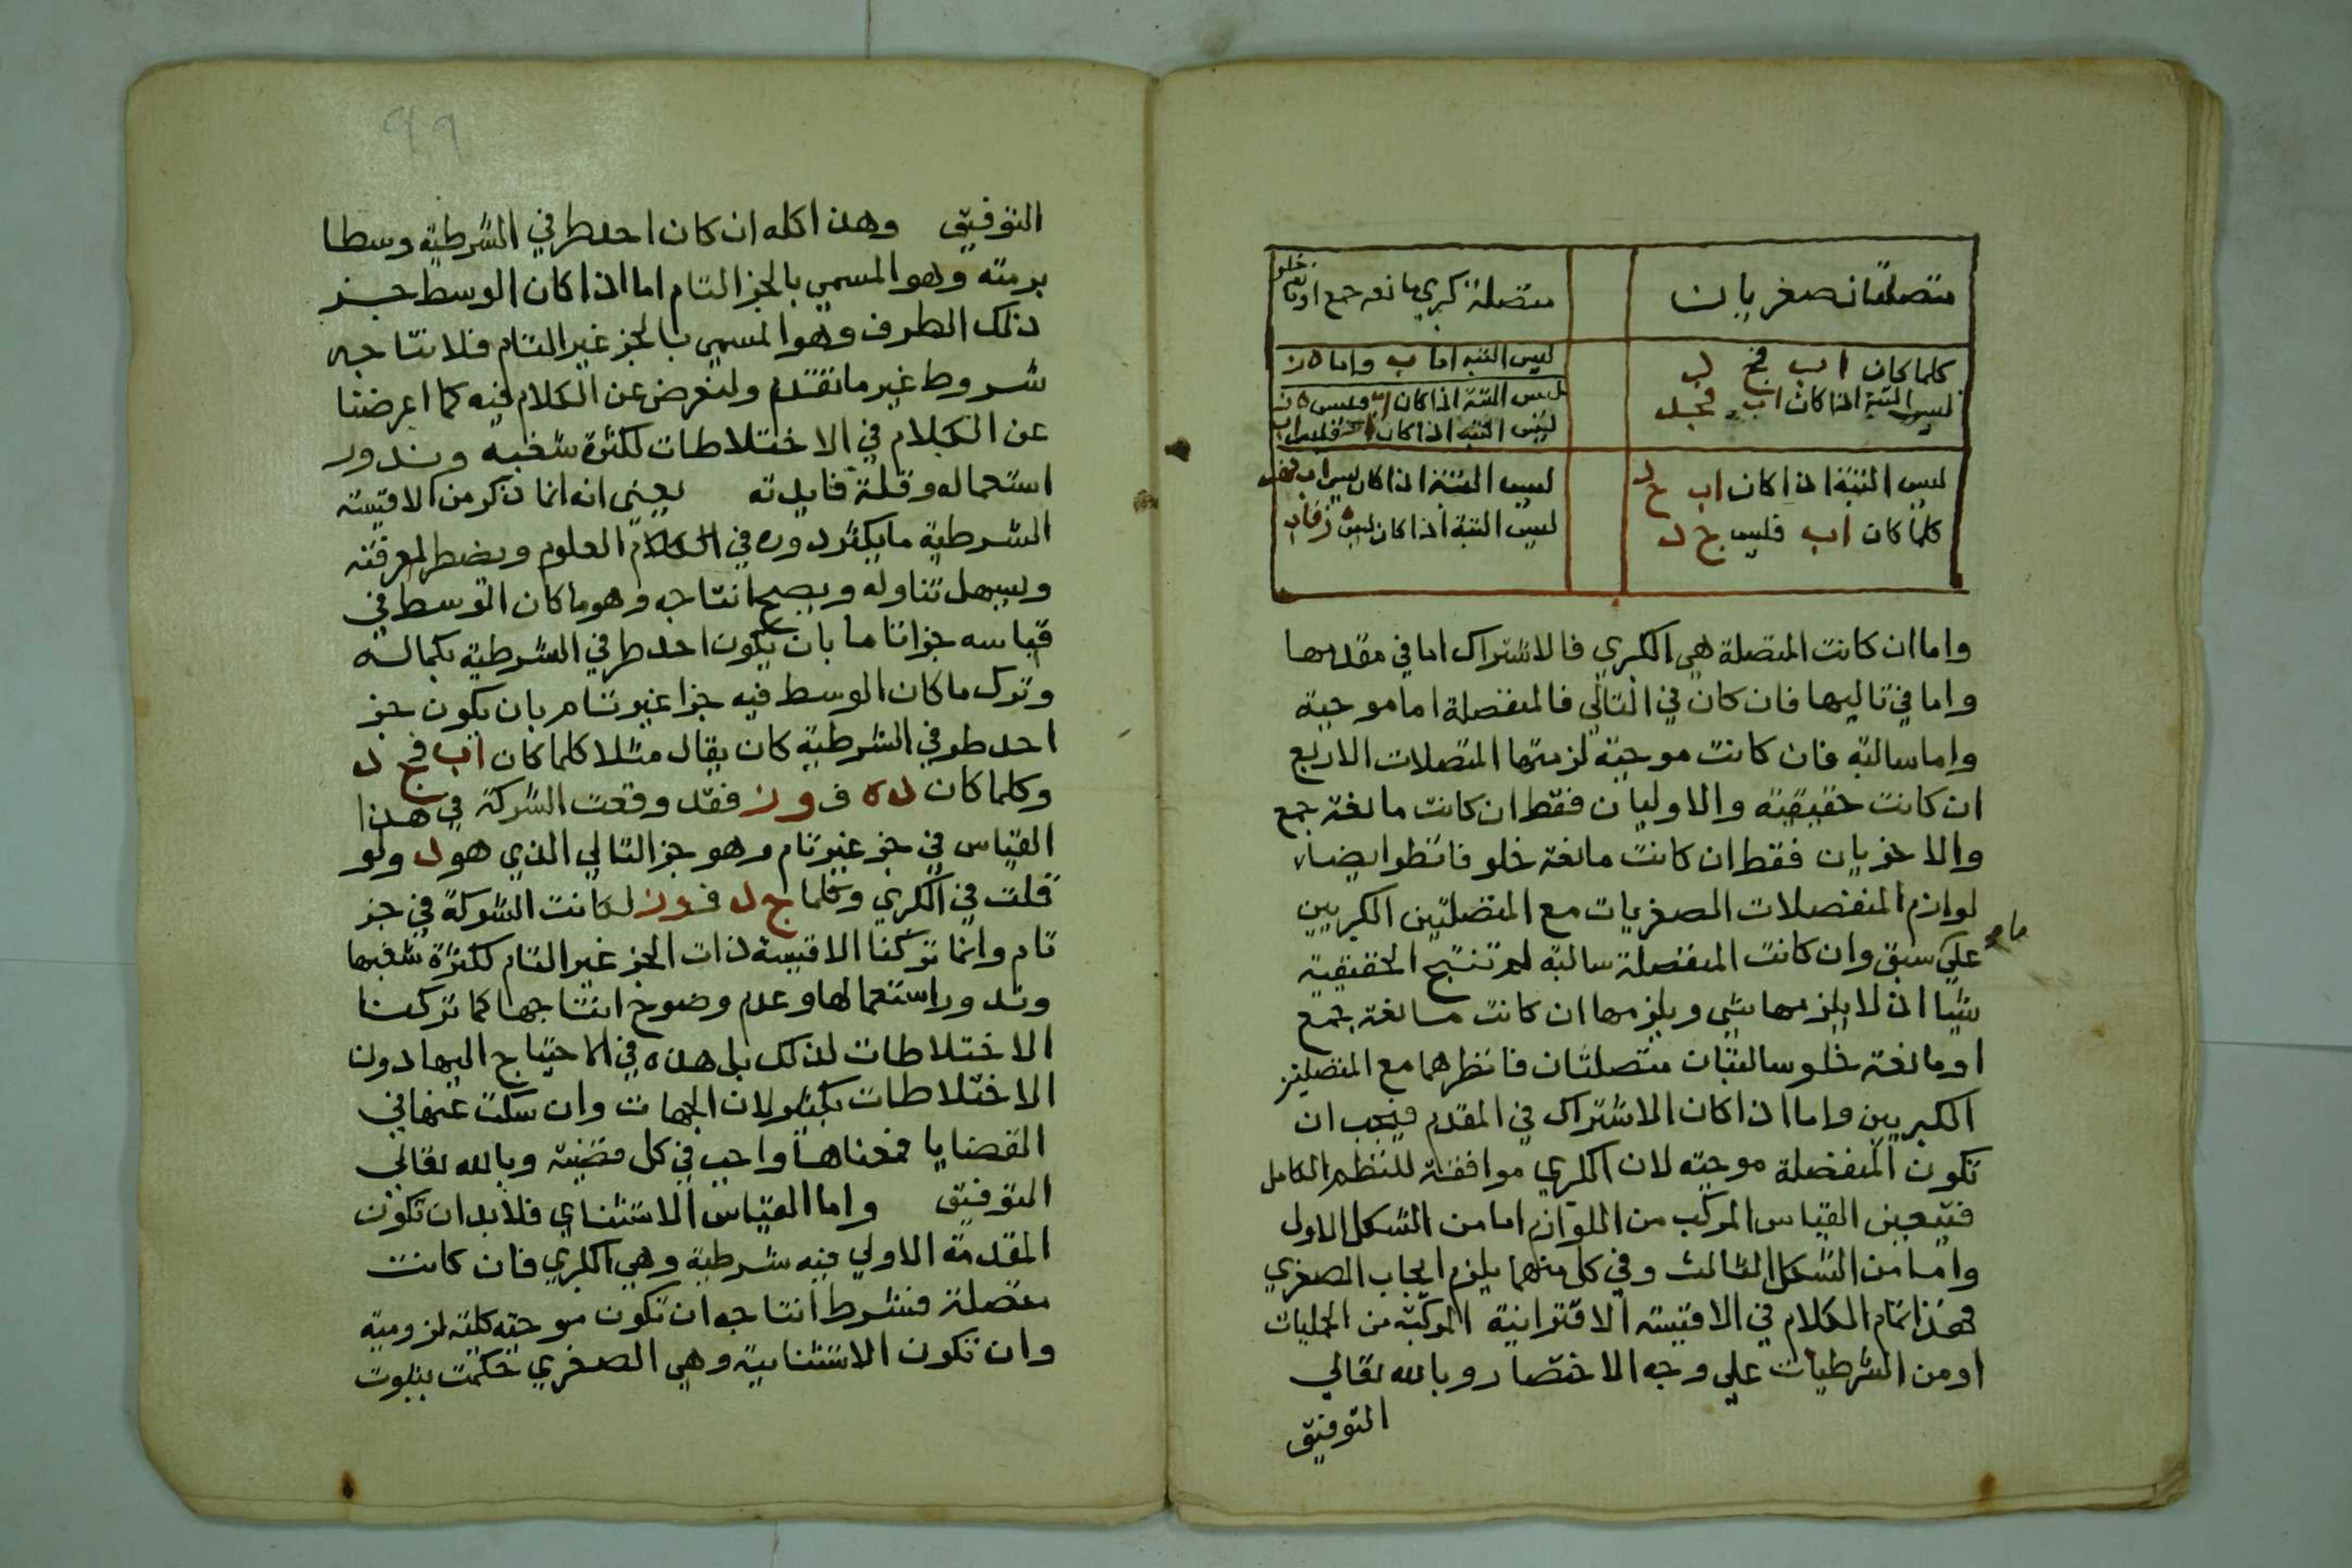 متصلتان صغريان
منفصلة كبري مانعة جمع او مانعة خلو
كلما كان اب فج د
ليس البتة اذا كان اب فج د
ليس البتة اما اب واما ه ز
ليس البتة اذا كان اب فليس ه ز
ليس البتة اذا كان ه ز فليس اب
ليس البتة اذا كان اب ج د
كلما كان اب فليس ج د
ليس البتة اذا كان ليس اب
ليس البتة اذا كان ليس ه ز فاب
واما ان كانت المتصلة هي الكبري فالاشتراك اما في مقدمها
واما في تاليها فان كان في التالي فالمنفصلة اما موجبة
واما سالبة فان كانت موجبة لزمتها المتصلات الاربع
ان كانت حقيقية والاوليان فقط ان كانت مانعة جمع
والاخريان فقط ان كانت مانعة خلو فانظر ايضا
لوازم المنفصلات الصغريات مع المتصلتين الكبريين
علي ما سبق وان كانت المنفصلة سالبة لم تنتج الحقيقية
شيا اذ لا يلزمها شي ويلزمها ان كانت مانعة جمع
او مانعة خلو سالبتان متصلتان فانظرهما مع المتصلتين
الكبريين واما اذا كان الاشتراك في المقدم فيجب ان
تكون المنفصلة موجبة لان الكبري موافقة للنظم الكامل
فتبين القياس المركب من اللوازم اما من الشكل الاول
واما من الشكل الثالث وفي كل منهما يلزم ايجاب الصغري
فهذا تمام الكلام في الاقيسة الاقترانية المركبة من الحمليات
او من الشرطيات علي وجه الاختصار وبالله تعالي
التوفيق
٩٩
التوفيق وهذا كله ان كان احد طرفي الشرطية وسطا
برمته وهو المسمي بالجز التام اما اذا كان الوسط جز
ذلك الطرف وهو المسمي بالجز غير التام فلانتاجه
شروط غير ما تقدم ولنعرض عن الكلام فيه كما اعرضنا
عن الكلام في الاختلاطات لكثرة شغبه وندور
استعماله وقلة فايدته يعني انه انما ذكر من الاقيسة
الشرطية ما يكثر دوره في الكلام العلوم ويضطر لمعرفته
ويسهل تناوله ويصح انتاجه وهو ما كان الوسط في
قياسه جزا تاما بان يكون احد طرفي الشرطية بكماله
وترك ما كان الوسط فيه جزا غير تام بان يكون جز
احد طرفي الشرطية كان يقال مثلا كلما كان اب فج د
وكلما كان د ه ف و ز فقد وقعت الشركة في هذا
القياس في جز غير تام وهو جز التالي الذي هو د ولو
قلت في الكبري وكلما ج د ف و ز لكانت الشركة في جز
تام وانما تركنا الاقيسة ذات الجز غير التام لكثرة شغبها
وندور استعمالها وعدم وضوح انتاجها كما تركنا
الاختلاطات لذلك بل هذه في الاحتياج اليها دون
الاختلاطات بكثير لان الجهات وان سكت عنها في
القضايا فمعناها واجب في كل قضية وبالله تعالي
التوفيق واما القياس الاستثناي فلا بد ان تكون
المقدمة الاولي فيه شرطية وهي الكبري فان كانت
متصلة فشرط انتاجه ان تكون موجبة كلية لزومية
وان تكون الاستثنايية وهي الصغري حكمت بثبوت